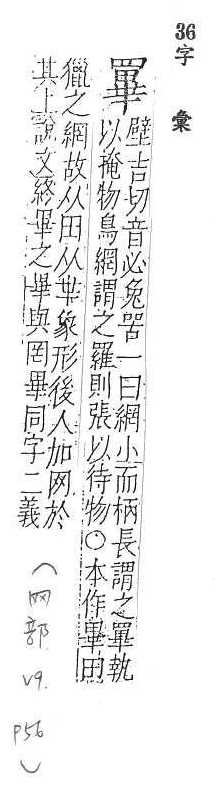 36字
彙
罼
壁吉切音必兔罟一曰網小而柄長謂之罼執
以掩物鳥網謂之羅則張以待物○本作畢田
獵之網故从田从𠦒象形後人加网於
其上說文終畢之畢與罔畢同字二義
(网部
v9.
p56
)